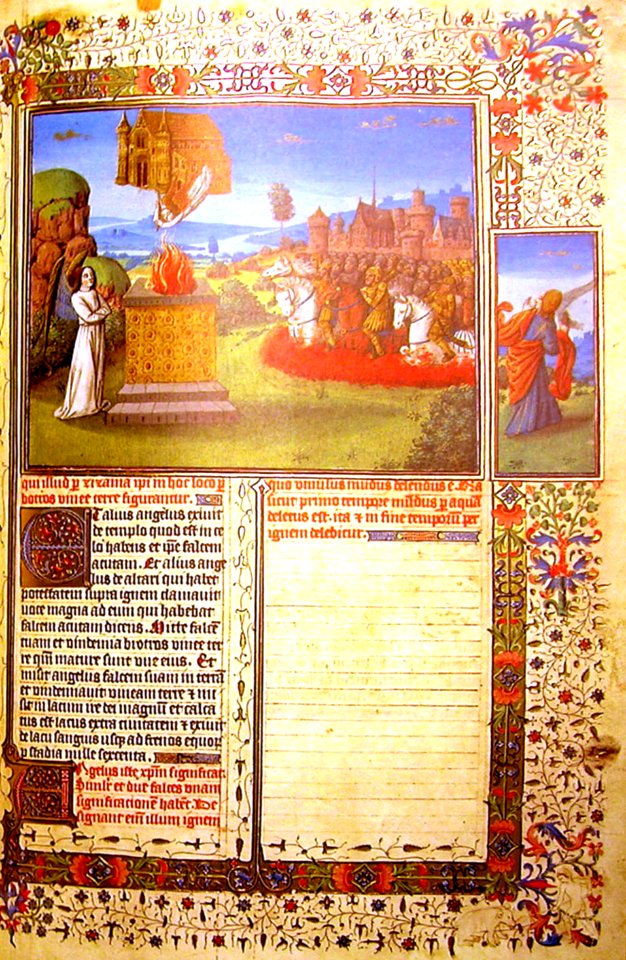 qui illud p zizania ipi in hoc loco p
botros vinee terre figurantur.
ET alius angelus exiuit
de templo quod est in ce
lo habens et ipe falcem
acutam. Et alius ange
lus de altari qui habet
potestatem supra ignem clamauit
uoce magna ad eum qui habebat
falcem acutam dicens. Mitte falcē
tuam et vindemia botros vinee ter
re qm̄ mature sunt vue eius. Et
misit angelus falcem suam in terrā
et vindemiauit vineam terre & mi
sit in lacum ire dei magnū & calca
tus est lacus extra ciuitatem & exiuit
de lacu sanguis usqȝ ad frenos equoꝝ
p stadia mille sexcenta.
Angelus iste xpm̄ significat
Similr̄ et due falces vnam
significationē habēt. De
signant em̄ illum ignem
quo uniuersus mūdus delendus ē. Nā
sicut primo tempore mūdus p aquā
deletus est. ita & in fine temporū per
ignem delebitur.